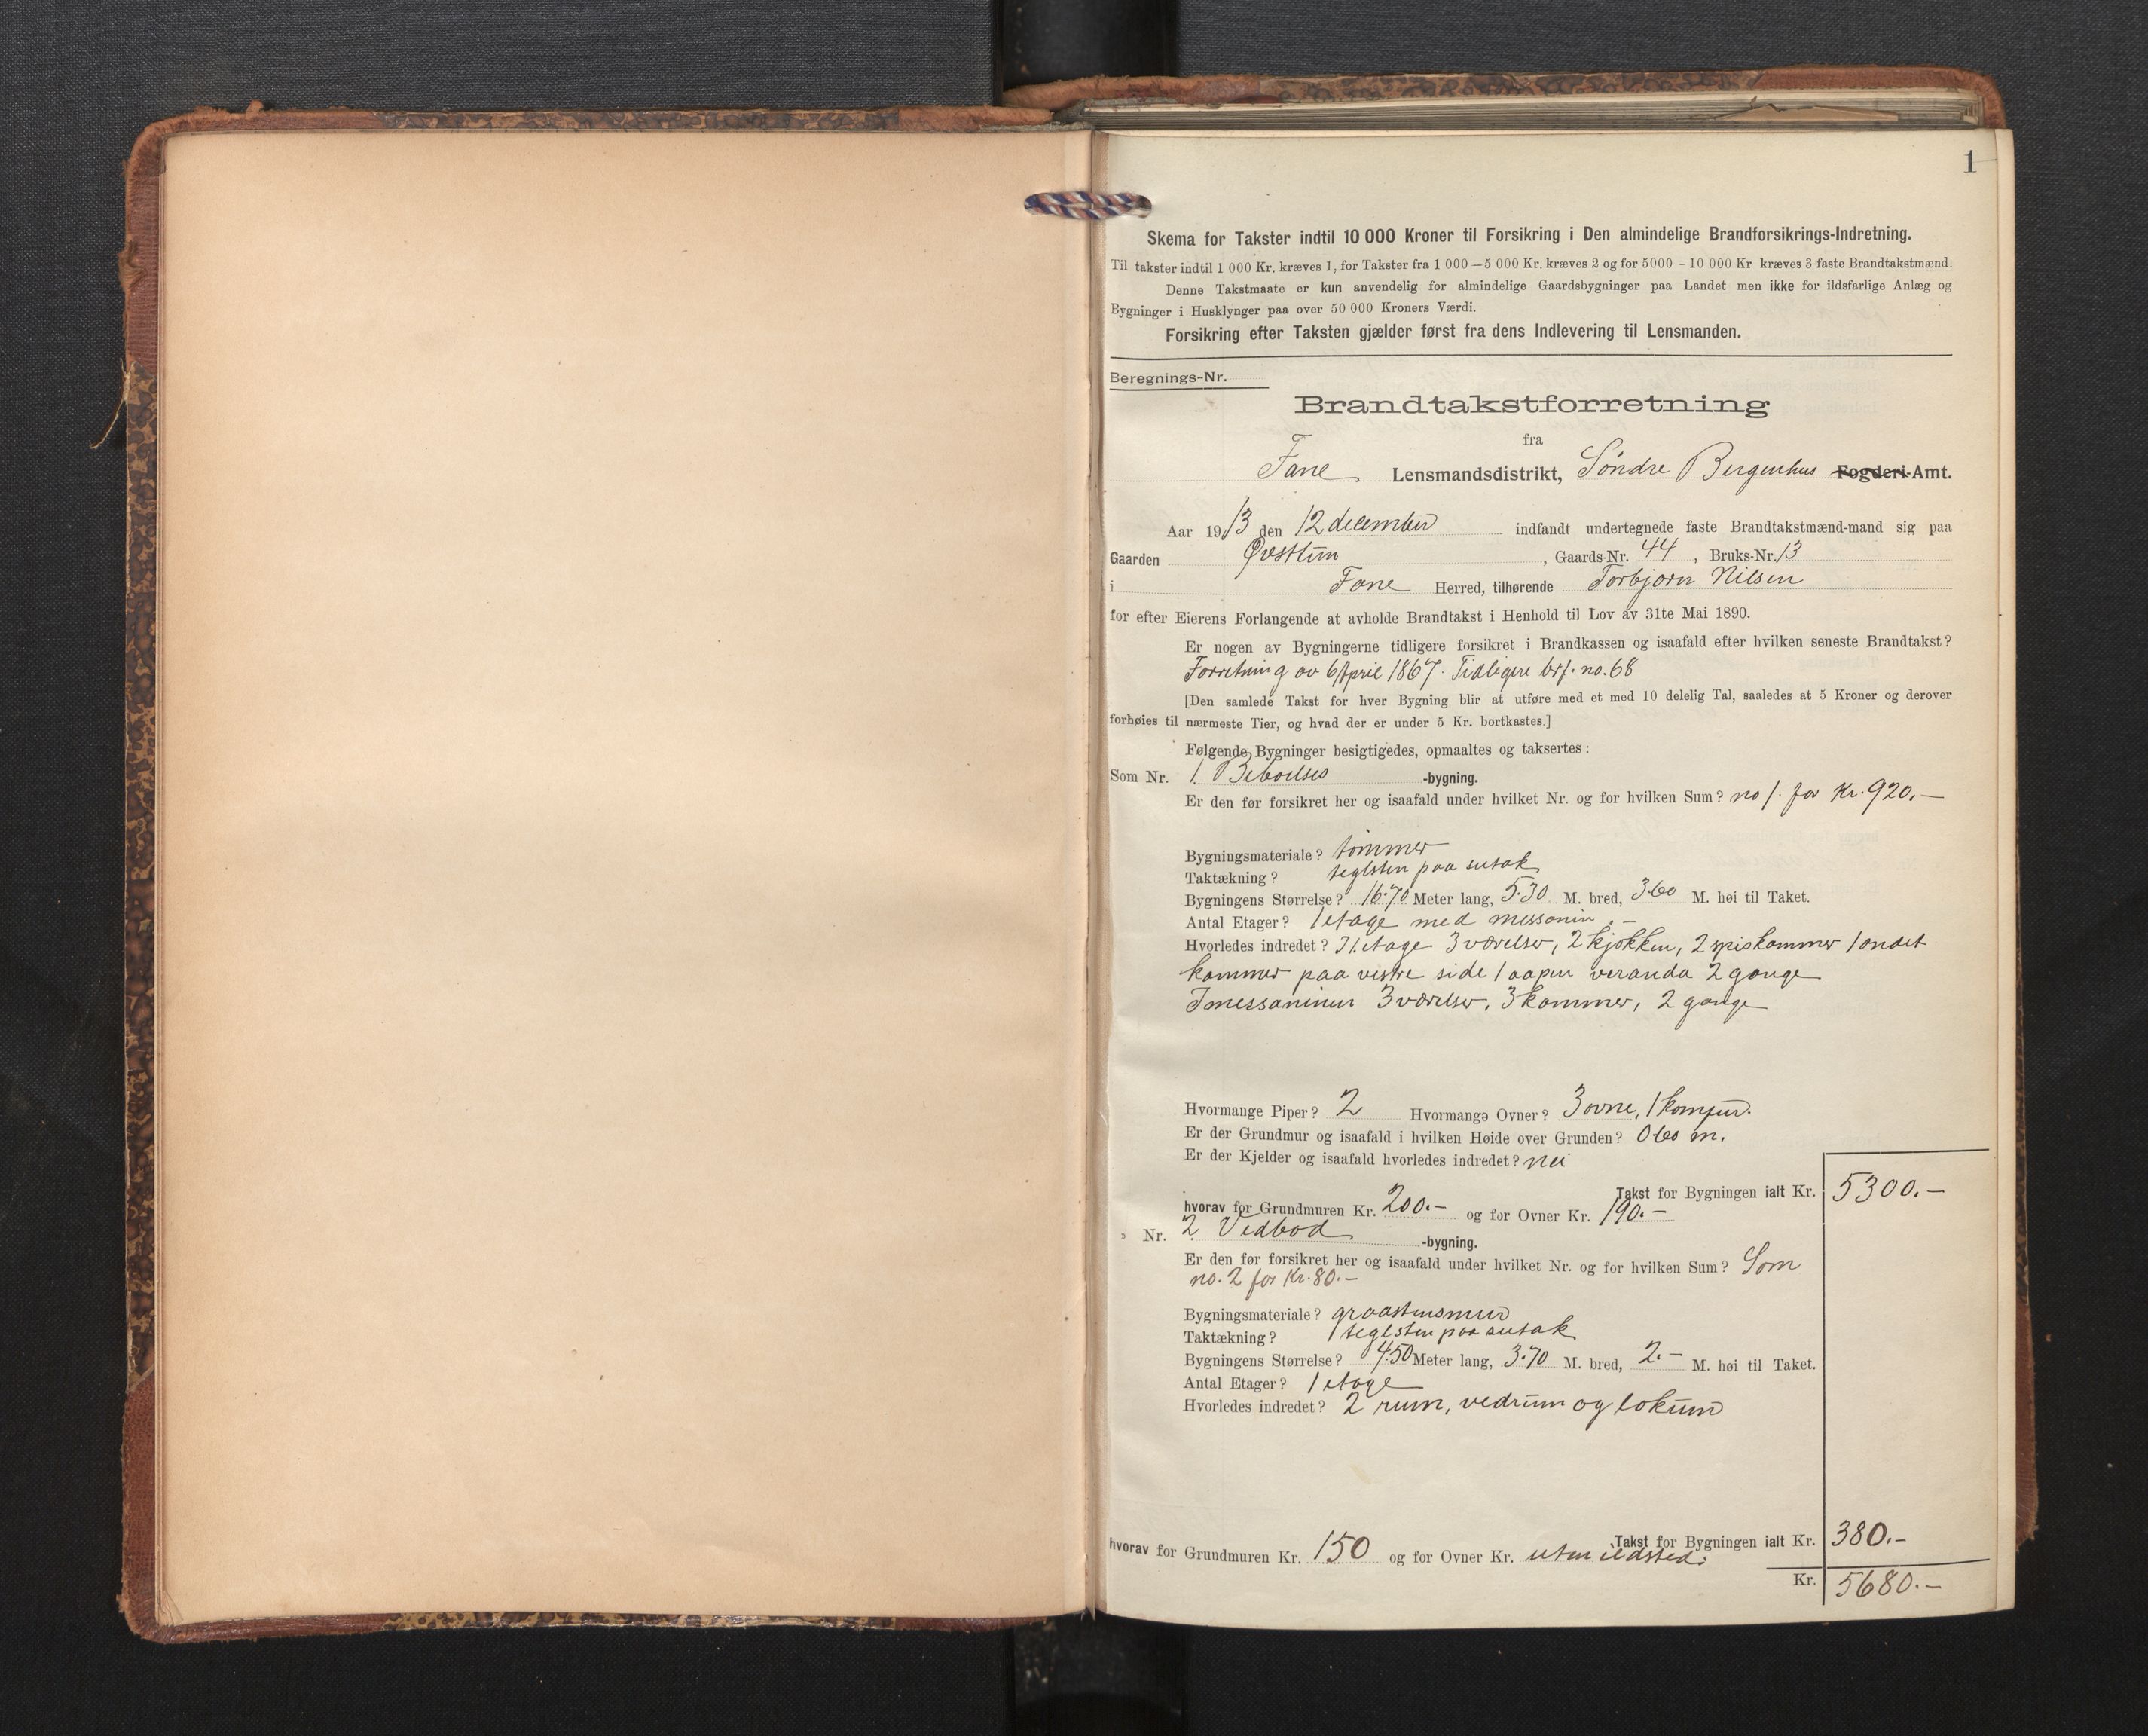 1
Skema for Takster indtil 10 000 Kroner til Forsikring i Den almindelige Brandforsikrings-Indretning.
Til takster indtil 1 000 Kr. kræves 1, for Takster fra 1 000 — 5 000 Kr. kræves 2 og for 5000 - 10 000 Kr kræves 3 faste Brandtakstmænd.
Denne Takstmaate er kun anvendelig for almindelige Gaardsbygninger paa Landet men ikke for ildsfarlige Anlæg og
Bygninger i Husklynger paa over 50 000 Kroners Værdi.
Forsikring efter Taksten gjælder først fra dens Indlevering til Lensmanden.
Beregnings-Nr.
Brandtakstforretning
fra
Fane Lensmandsdistrikt, Søndre Bergenhus Fogderi-Amt.
Aar 1913 den 12 december indfandt undertegnede faste Brandtakstmænd-mand sig paa
Gaarden Øvsttun, Gaards-Nr. 44, Bruks-Nr. 13
i Fane Herred, tilhørende Torbjørn Nilsen
for efter Eierens Forlangende at avholde Brandtakst i Henhold til Lov av 31te Mai 1890.
Er nogen av Bygningerne tidligere forsikret i Brandkassen og isaafald efter hvilken seneste Brandtakst?
Forretning av 6 April 1867. Tidligere brf. no. 68
[Den samlede Takst for hver Bygning blir at utføre med et med 10 delelig Tal, saaledes at 5 Kroner og derover
forhøies til nærmeste Tier, og hvad der er under 5 Kr. bortkastes.]
Følgende Bygninger besigtigedes, opmaaltes og taksertes:
Som Nr. 1 Beboelses -bygning.
Er den før forsikret her og isaafald under hvilket Nr. og for hvilken Sum? no 1. for Kr. 920.—
Bygningsmateriale? tømmer
Taktækning? teglsten paa sutak
Bygningens Størrelse? 16.70 Meter lang, 5.30 M. bred, 3.60 M. høi til Taket.
Antal Etager? 1 etage med messanin.—
Hvorledes indredet? I 1. etage 3 værelser, 2 kjøkken, 2 spiskammer 1 andet
kammer paa vestre side 1 aapen veranda 2 gange
I messaninen 3 værelser, 3 kammer, 2 gange
Hvormange Piper? 2 Hvormange Ovner? 3 ovne, 1 komfur.
Er der Grundmur og isaafald i hvilken Høide over Grunden? 0 60 m.
Er der Kjelder og isaafald hvorledes indredet? nei
Takst for Bygningen ialt Kr. 5300.—
hvorav for Grundmuren Kr. 200.— og for Ovner Kr. 190.—
» Nr. 2. Vedbod -bygning.
Er den før forsikret her og isaafald under hvilket Nr. og for hvilken Sum? Som
no. 2 for Kr. 80.—
Bygningsmateriale? graastensmur
Taktækning? teglsten paa sutak
Bygningens Størrelse? 4.50 Meter lang, 3.70 M. bred, 2.— M. høi til Taket.
Antal Etager? 1 etage
Hvorledes indredet? 2 rum, vedrum og lokum
Takst for Bygningen ialt Kr. 380.—
hvorav for Grundmuren Kr. 150 og for Ovner Kr. uten ildsted.
Kr. 5680.—